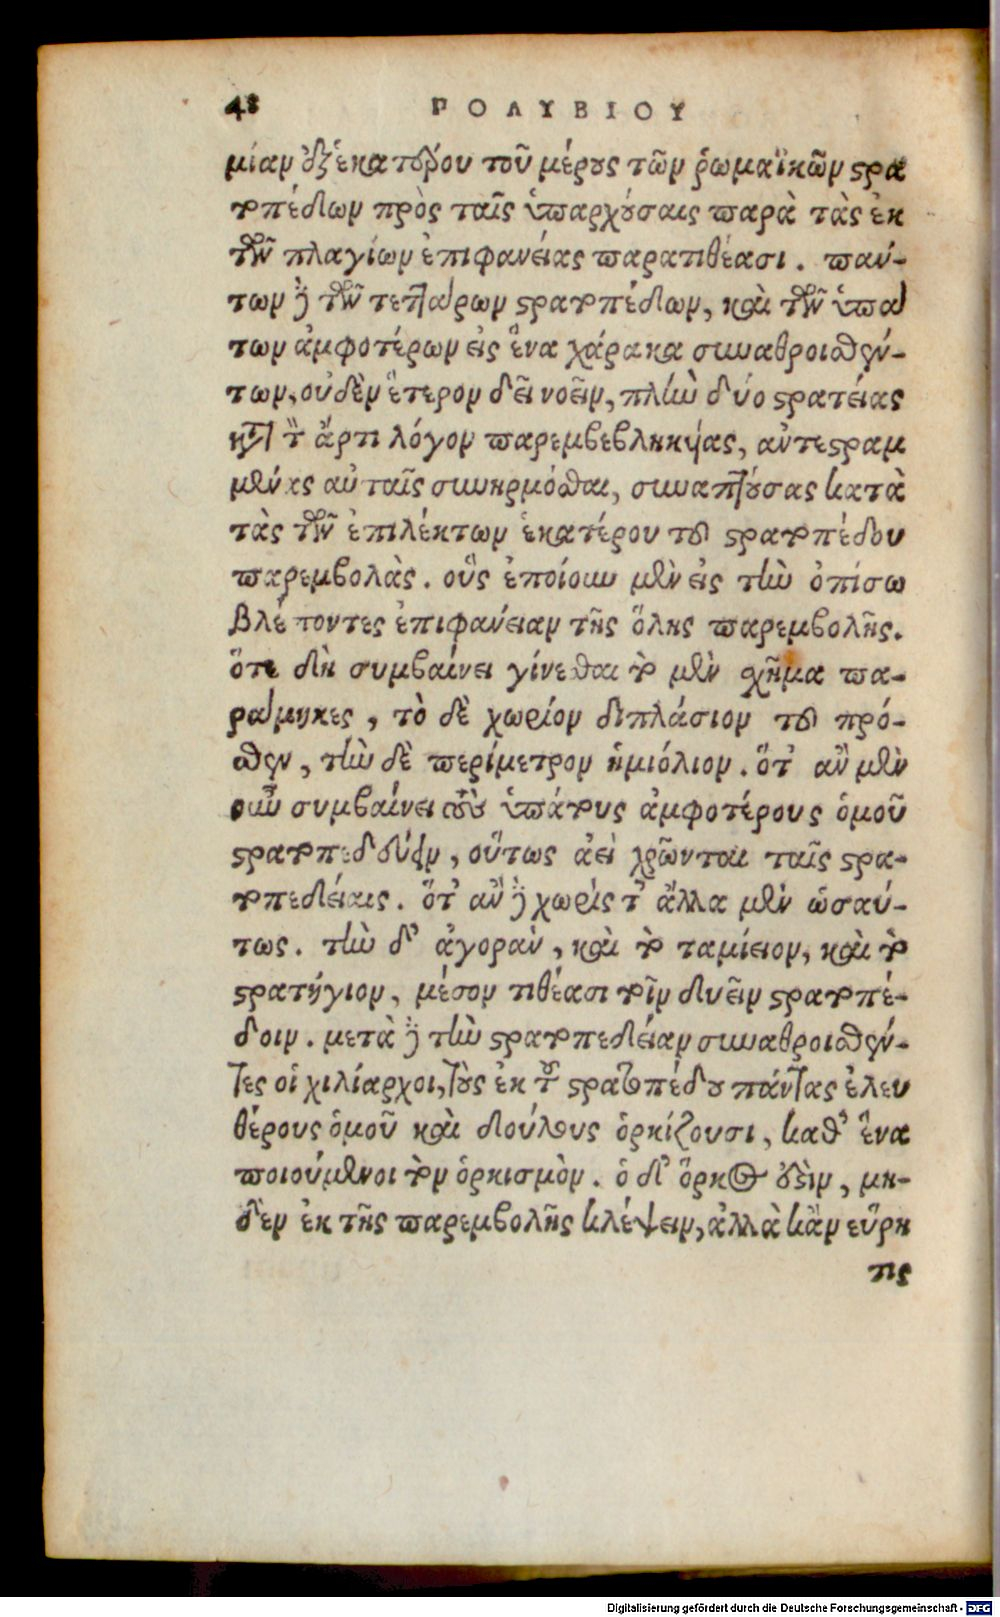 48 ΠΟΛΥΒΙΟΥ
μίαν ἐξ ἑκατέρου τοῦ μέρους τῶν ῥωμαϊκῶν στρα
τοπέδων πρὸς ταῖς ὑπαρχούσαις παρὰ τὰς ἐκ
τῶν πλαγίων ἐπιφανείας παρατιθέασι. πάν-
των δὲ τῶν τεττάρων στρατοπέδων, καὶ τῶν ὑπά
των ἀμφοτέρων εἰς ἕνα χάρακα συναθροισθέν-
των, οὐδὲν ἕτερον δεῖ νοεῖν, πλὴν δύο στρατείας
κατὰ τὸν ἄρτι λόγον παρεμβεβληκυίας, ἀντεστραμ
μένας αὐταῖς συνηρμόσθαι, συναπτούσας κατὰ
τὰς τῶν ἐπιλέκτων ἑκατέρου τοῦ στρατοπέδου
παρεμβολὰς. οὓς ἐποίουν μὲν εἰς τὴν ὀπίσω
βλέποντες ἐπιφάνειαν τῆς ὅλης παρεμβολῆς.
ὅτε δὴ συμβαίνει γίνεσθαι τὸ μὲν σχῆμα πα-
ράμηκες, τὸ δὲ χωρίον διπλάσιον τοῦ πρό-
σθεν, τὴν δὲ περίμετρον ἡμιόλιον. ὅτ' ἂν μὲν
οὖν συμβαίνει τοὺς ὑπάτους ἀμφοτέρους ὁμοῦ
στρατοπεδεύειν, οὕτως ἀεὶ χρῶνται ταῖς στρα-
τοπεδείαις. ὅτ' ἂν δὲ χωρὶς τ' ἄλλα μὲν ὡσαύ-
τως. τὴν δ' ἀγορὰν, καὶ τὸ ταμίειον, καὶ τὸ
στρατήγιον, μέσον τιθέασι τοῖν δυεῖν στρατοπέ-
δοιν. μετὰ δὲ τὴν στρατοπεδείαν συναθροισθέν-
τες οἱ χιλίαρχοι, τοὺς ἐκ τοῦ στρατοπέδου πάντας ἐλευ
θέρους ὁμοῦ καὶ δούλους ὁρκίζουσι, καθ' ἕνα
ποιούμενοι τὸν ὁρκισμὸν. ὁ δ' ὅρκος ἐστὶν, μη-
δὲν ἐκ τῆς παρεμβολῆς κλέψειν, ἀλλὰ κἂν εὕρη
τις
Digitalisierung gefördert durch die Deutsche Forschungsgemeinschaft - DFG